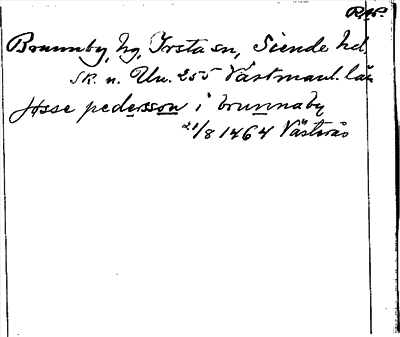 R.A.P.
Brunnby, by, Irsta sn, Siende hd
SK. n. Un. 255 Västmanl. län
Jösse pedersson i brunnaby
21/8 1464 Västerås